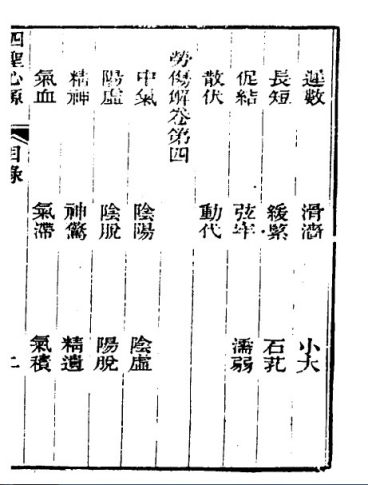 遲數 滑濇 小大
長短 緩緊 石芤
促結 弦牢 濡弱
散伏 動代
勞傷解卷第四
中氣 陰陽 陰虛
陽虛 陰脫 陽脫
精神 神驚 精遺
氣血 氣滯 氣積
四聖心源 目錄 二